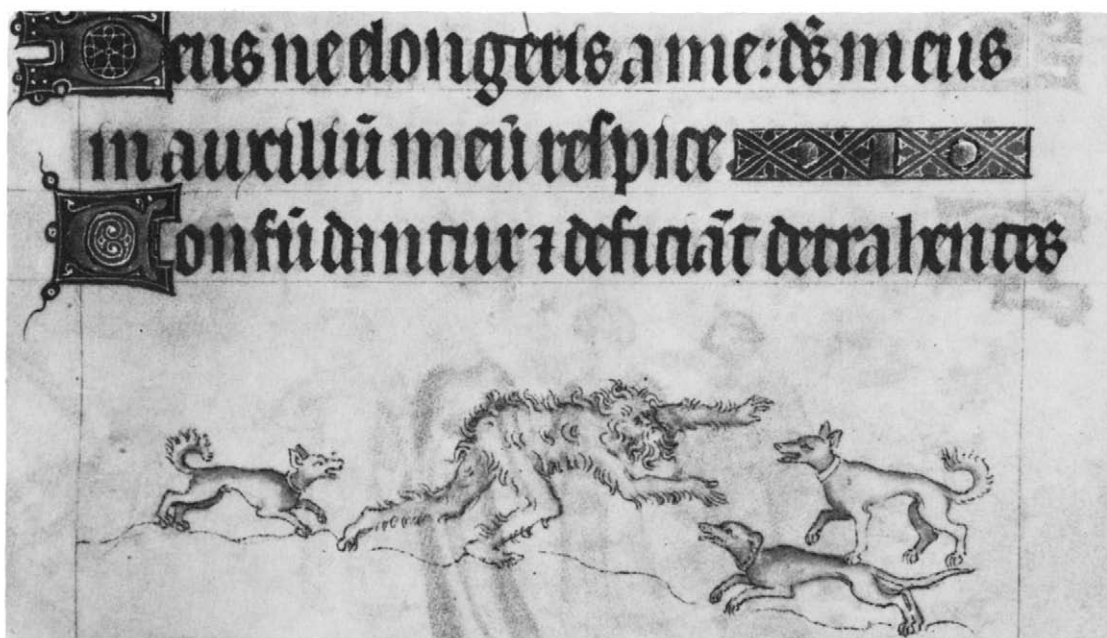 Deus ne elongeris a me: ds̄ meus
in auxiliū meū respice
Confūdantur ⁊ deficiāt detrahentes